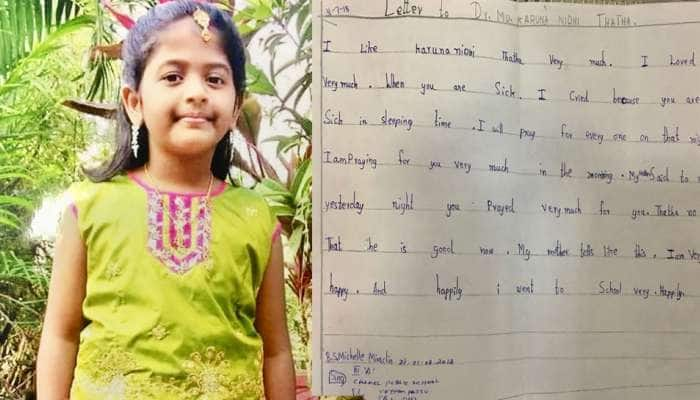 Letter to Dr. Mu. KARUNA NIDHI THATHA.
I Like Karunanidhi Thatha Very much. I Loved
Very much. When you are Sick. I Cried because you are
Sick in sleeping time. I will pray for every one on that
I am Praying for you very much in the morning. My Said to
yesterday night you Prayed very much for you. Thatha
That he is good now. My mother tells like this. I am Very
happy. And happily i went to School very. Happily.
B.S. Michelle